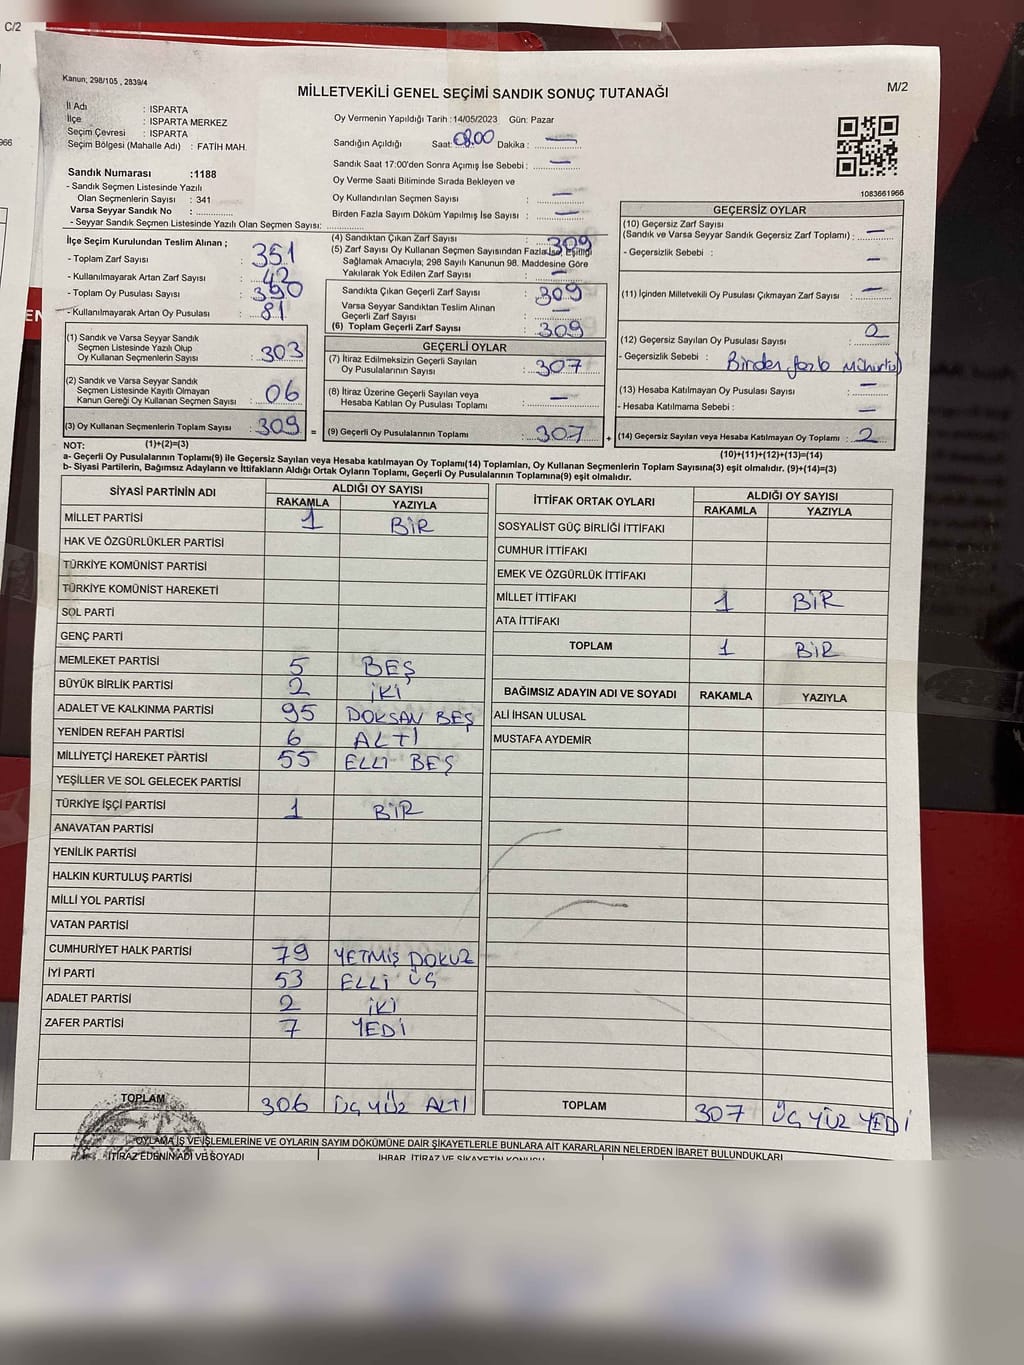 C/2
966
EN
Kanun; 298/105 , 2839/4
M/2
MİLLETVEKİLİ GENEL SEÇİMİ SANDIK SONUÇ TUTANAĞI
İl Adı : ISPARTA
İlçe : ISPARTA MERKEZ
Seçim Çevresi : ISPARTA
Seçim Bölgesi (Mahalle Adı) : FATİH MAH.
Oy Vermenin Yapıldığı Tarih :14/05/2023 Gün: Pazar
Sandığın Açıldığı Saat: 08.00 Dakika : —
Sandık Saat 17:00'den Sonra Açımış İse Sebebi : —
Oy Verme Saati Bitiminde Sırada Bekleyen ve
Oy Kullandırılan Seçmen Sayısı : —
Birden Fazla Sayım Döküm Yapılmış İse Sayısı : —
1083661966
Sandık Numarası :1188
- Sandık Seçmen Listesinde Yazılı
Olan Seçmenlerin Sayısı : 341
Varsa Seyyar Sandık No :
- Seyyar Sandık Seçmen Listesinde Yazılı Olan Seçmen Sayısı:
İlçe Seçim Kurulundan Teslim Alınan ;
- Toplam Zarf Sayısı : 351
- Kullanılmayarak Artan Zarf Sayısı : 42
- Toplam Oy Pusulası Sayısı : 390
- Kullanılmayarak Artan Oy Pusulası : 81
(1) Sandık ve Varsa Seyyar Sandık
Seçmen Listesinde Yazılı Olup
Oy Kullanan Seçmenlerin Sayısı : 303
(2) Sandık ve Varsa Seyyar Sandık
Seçmen Listesinde Kayıtlı Olmayan
Kanun Gereği Oy Kullanan Seçmen Sayısı : 06
(3) Oy Kullanan Seçmenlerin Toplam Sayısı : 309
(4) Sandıktan Çıkan Zarf Sayısı : 309
(5) Zarf Sayısı Oy Kullanan Seçmen Sayısından Fazla İse, Eşitliği
Sağlamak Amacıyla; 298 Sayılı Kanunun 98. Maddesine Göre
Yakılarak Yok Edilen Zarf Sayısı : —
Sandıkta Çıkan Geçerli Zarf Sayısı : 309
Varsa Seyyar Sandıktan Teslim Alınan
Geçerli Zarf Sayısı : —
(6) Toplam Geçerli Zarf Sayısı : 309
GEÇERLİ OYLAR
(7) İtiraz Edilmeksizin Geçerli Sayılan
Oy Pusulalarının Sayısı : 307
(8) İtiraz Üzerine Geçerli Sayılan veya
Hesaba Katılan Oy Pusulaları Toplamı : —
= (9) Geçerli Oy Pusulalarının Toplamı : 307
GEÇERSİZ OYLAR
(10) Geçersiz Zarf Sayısı
(Sandık ve Varsa Seyyar Sandık Geçersiz Zarf Toplamı) : —
- Geçersizlik Sebebi : —
(11) İçinden Milletvekili Oy Pusulası Çıkmayan Zarf Sayısı : —
(12) Geçersiz Sayılan Oy Pusulası Sayısı : 2
- Geçersizlik Sebebi : Birden fazla mühürlü
(13) Hesaba Katılmayan Oy Pusulası Sayısı : —
- Hesaba Katılmama Sebebi : —
+ (14) Geçersiz Sayılan veya Hesaba Katılmayan Oy Toplamı : 2
NOT: (1)+(2)=(3)
(10)+(11)+(12)+(13)=(14)
a- Geçerli Oy Pusulalarının Toplamı(9) ile Geçersiz Sayılan veya Hesaba katılmayan Oy Toplamı(14) Toplamları, Oy Kullanan Seçmenlerin Toplam Sayısına(3) eşit olmalıdır. (9)+(14)=(3)
b- Siyasi Partilerin, Bağımsız Adayların ve İttifakların Aldığı Ortak Oyların Toplamı, Geçerli Oy Pusulalarının Toplamına(9) eşit olmalıdır.
SİYASİ PARTİNİN ADI ALDIĞI OY SAYISI
RAKAMLA YAZIYLA
MİLLET PARTİSİ 1 BİR
HAK VE ÖZGÜRLÜKLER PARTİSİ
TÜRKİYE KOMÜNİST PARTİSİ
TÜRKİYE KOMÜNİST HAREKETİ
SOL PARTİ
GENÇ PARTİ
MEMLEKET PARTİSİ 5 BEŞ
BÜYÜK BİRLİK PARTİSİ 2 İKİ
ADALET VE KALKINMA PARTİSİ 95 DOKSAN BEŞ
YENİDEN REFAH PARTİSİ 6 ALTI
MİLLİYETÇİ HAREKET PARTİSİ 55 ELLİ BEŞ
YEŞİLLER VE SOL GELECEK PARTİSİ
TÜRKİYE İŞÇİ PARTİSİ 1 BİR
ANAVATAN PARTİSİ
YENİLİK PARTİSİ
HALKIN KURTULUŞ PARTİSİ
MİLLİ YOL PARTİSİ
VATAN PARTİSİ
CUMHURİYET HALK PARTİSİ 79 YETMİŞ DOKUZ
İYİ PARTİ 53 ELLİ ÜÇ
ADALET PARTİSİ 2 İKİ
ZAFER PARTİSİ 7 YEDİ
TOPLAM 306 ÜÇ YÜZ ALTI
İTTİFAK ORTAK OYLARI ALDIĞI OY SAYISI
RAKAMLA YAZIYLA
SOSYALİST GÜÇ BİRLİĞİ İTTİFAKI
CUMHUR İTTİFAKI
EMEK VE ÖZGÜRLÜK İTTİFAKI
MİLLET İTTİFAKI 1 BİR
ATA İTTİFAKI
TOPLAM 1 BİR
BAĞIMSIZ ADAYIN ADI VE SOYADI RAKAMLA YAZIYLA
ALİ İHSAN ULUSAL
MUSTAFA AYDEMİR
TOPLAM 307 ÜÇ YÜZ YEDİ
OYLAMA İŞ VE İŞLEMLERİNE VE OYLARIN SAYIM DÖKÜMÜNE DAİR ŞİKAYETLERLE BUNLARA AİT KARARLARIN NELERDEN İBARET BULUNDUKLARI
İTİRAZ EDENİN ADI VE SOYADI İHBAR, İTİRAZ VE ŞİKAYETİN KONUSU